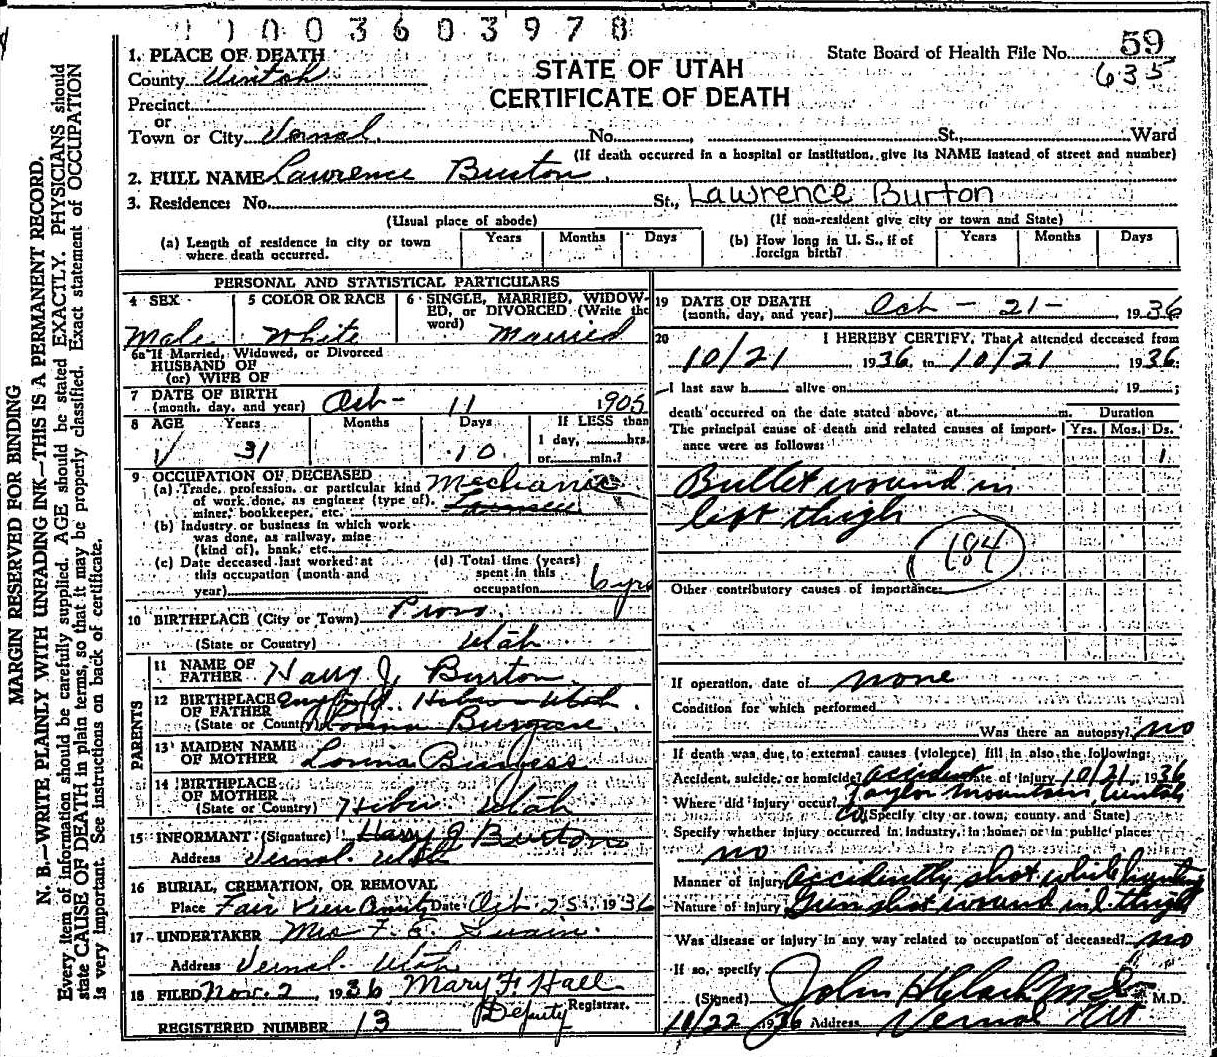 1 1 0 0 3 6 0 3 9 7 8
1. PLACE OF DEATH
County Uintah
Precinct
or
Town or City Vernal No. , St., Ward
(If death occurred in a hospital or institution, give its NAME instead of street and number)
STATE OF UTAH
CERTIFICATE OF DEATH
State Board of Health File No. 59
635
2. FULL NAME Lawrence Burton
3. Residence: No. St., Lawrence Burton
(Usual place of abode) (If non-resident give city or town and State)
(a) Length of residence in city or town where death occurred. Years Months Days
(b) How long in U. S., if of foreign birth? Years Months Days
MARGIN RESERVED FOR BINDING
N. B.—WRITE PLAINLY WITH UNFADING INK—THIS IS A PERMANENT RECORD.
Every item of information should be carefully supplied. AGE should be stated EXACTLY. PHYSICIANS should
state CAUSE OF DEATH in plain terms, so that it may be properly classified. Exact statement of OCCUPATION
is very important. See instructions on back of certificate.
PERSONAL AND STATISTICAL PARTICULARS
4 SEX 5 COLOR OR RACE 6 SINGLE, MARRIED, WIDOW-
ED, or DIVORCED (Write the
word)
Male White Married
6a If Married, Widowed, or Divorced
HUSBAND OF
(or) WIFE OF
7 DATE OF BIRTH
(month, day, and year) Oct - 11 1905
8 AGE Years Months Days If LESS than
1 day, hrs.
or min.?
31 10
9 OCCUPATION OF DECEASED
(a) Trade, profession, or particular kind Mechanic
of work done, as engineer (type of),
miner, bookkeeper, etc.
(b) Industry or business in which work
was done, as railway, mine
(kind of), bank, etc.
(c) Date deceased last worked at
this occupation (month and
year)
(d) Total time (years)
spent in this
occupation 6 yrs
10 BIRTHPLACE (City or Town) Provo
(State or Country) Utah
PARENTS
11 NAME OF
FATHER Harry J. Burton
12 BIRTHPLACE Heber Utah
OF FATHER
(State or Country)
13 MAIDEN NAME
OF MOTHER Lovina Burgess
14 BIRTHPLACE
OF MOTHER
(State or Country) Heber Utah
15 INFORMANT (Signature) Harry J Burton
Address Vernal Utah
16 BURIAL, CREMATION, OR REMOVAL
Place Fair View Date Oct 25, 1936
17 UNDERTAKER Mrs F. E. Swain
Address Vernal Utah
18 FILED Nov. 2, 1936 Mary F. Hall
Deputy Registrar.
REGISTERED NUMBER 13
19 DATE OF DEATH
(month, day, and year) Oct - 21 - , 1936
20 I HEREBY CERTIFY, That I attended deceased from
10/21 1936, to 10/21 1936.
I last saw h alive on , 19 ;
death occurred on the date stated above, at m.
The principal cause of death and related causes of import-
ance were as follows:
Duration
Yrs. Mos. Ds.
1
Bullet wound in
left thigh
184
Other contributory causes of importance:
If operation, date of none
Condition for which performed
Was there an autopsy? no
If death was due to external causes (violence) fill in also the following:
Accident, suicide, or homicide? accident Date of injury 10/21, 1936
Where did injury occur? Taylor Mountain, Uintah
Co (Specify city or town, county and State)
Specify whether injury occurred in industry, in home, or in public place:
no
Manner of injury accidently shot while hunting
Nature of injury Gunshot wound in l. thigh
Was disease or injury in any way related to occupation of deceased? no
If so, specify
(Signed) John H Clark M.D. M.D.
10/22 1936 Address Vernal Ut